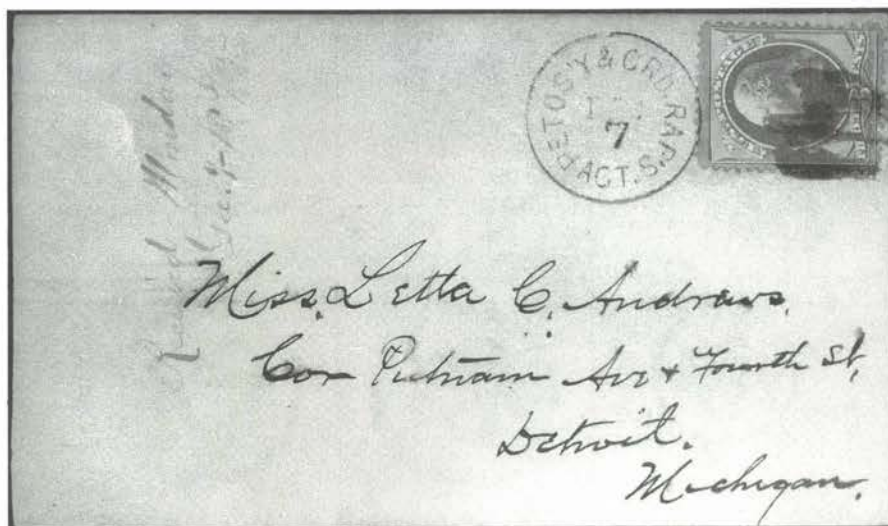 PETOS'Y & GRD. RAP'S. AGT.
7
Miss. Letta C. Andrews.
Cor Putnam Ave + Fourth St,
Detroit.
Michigan.